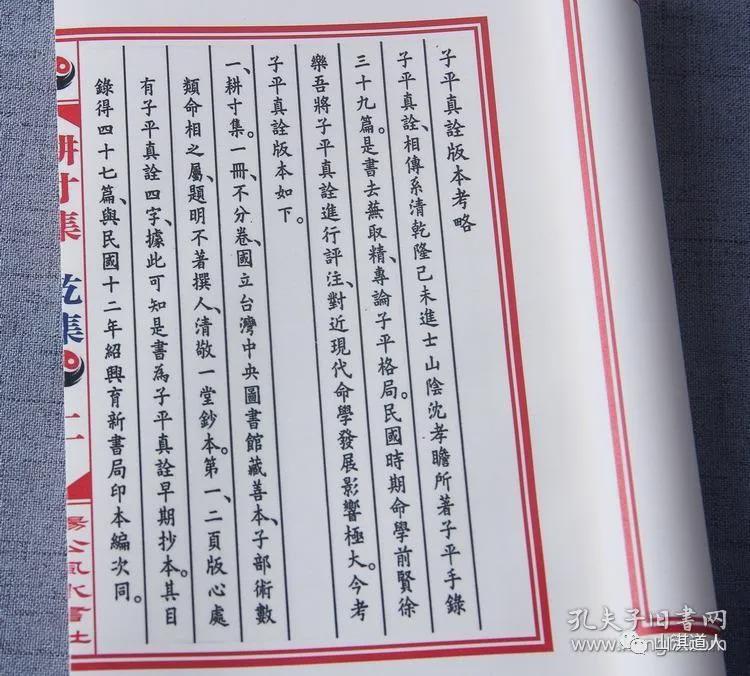 子平真詮版本考略
子平真詮、相傳系清乾隆己未進士山陰沈孝瞻所著子平手錄
三十九篇。是書去蕪取精、專論子平格局。民國時期命學前賢徐
樂吾將子平真詮進行評注、對近現代命學發展影響極大。今考
子平真詮版本如下。
一、耕寸集。一冊、不分卷、國立台灣中央圖書館藏善本、子部術數
類命相之屬、題明不著撰人、清敬一堂鈔本。第一、二頁版心處
有子平真詮四字、據此可知是書為子平真詮早期抄本。其目
錄得四十七篇、與民國十二年紹興育新書局印本編次同。
耕寸集 乾集
二
楊公風水書社
孔夫子旧书网
山淇道人